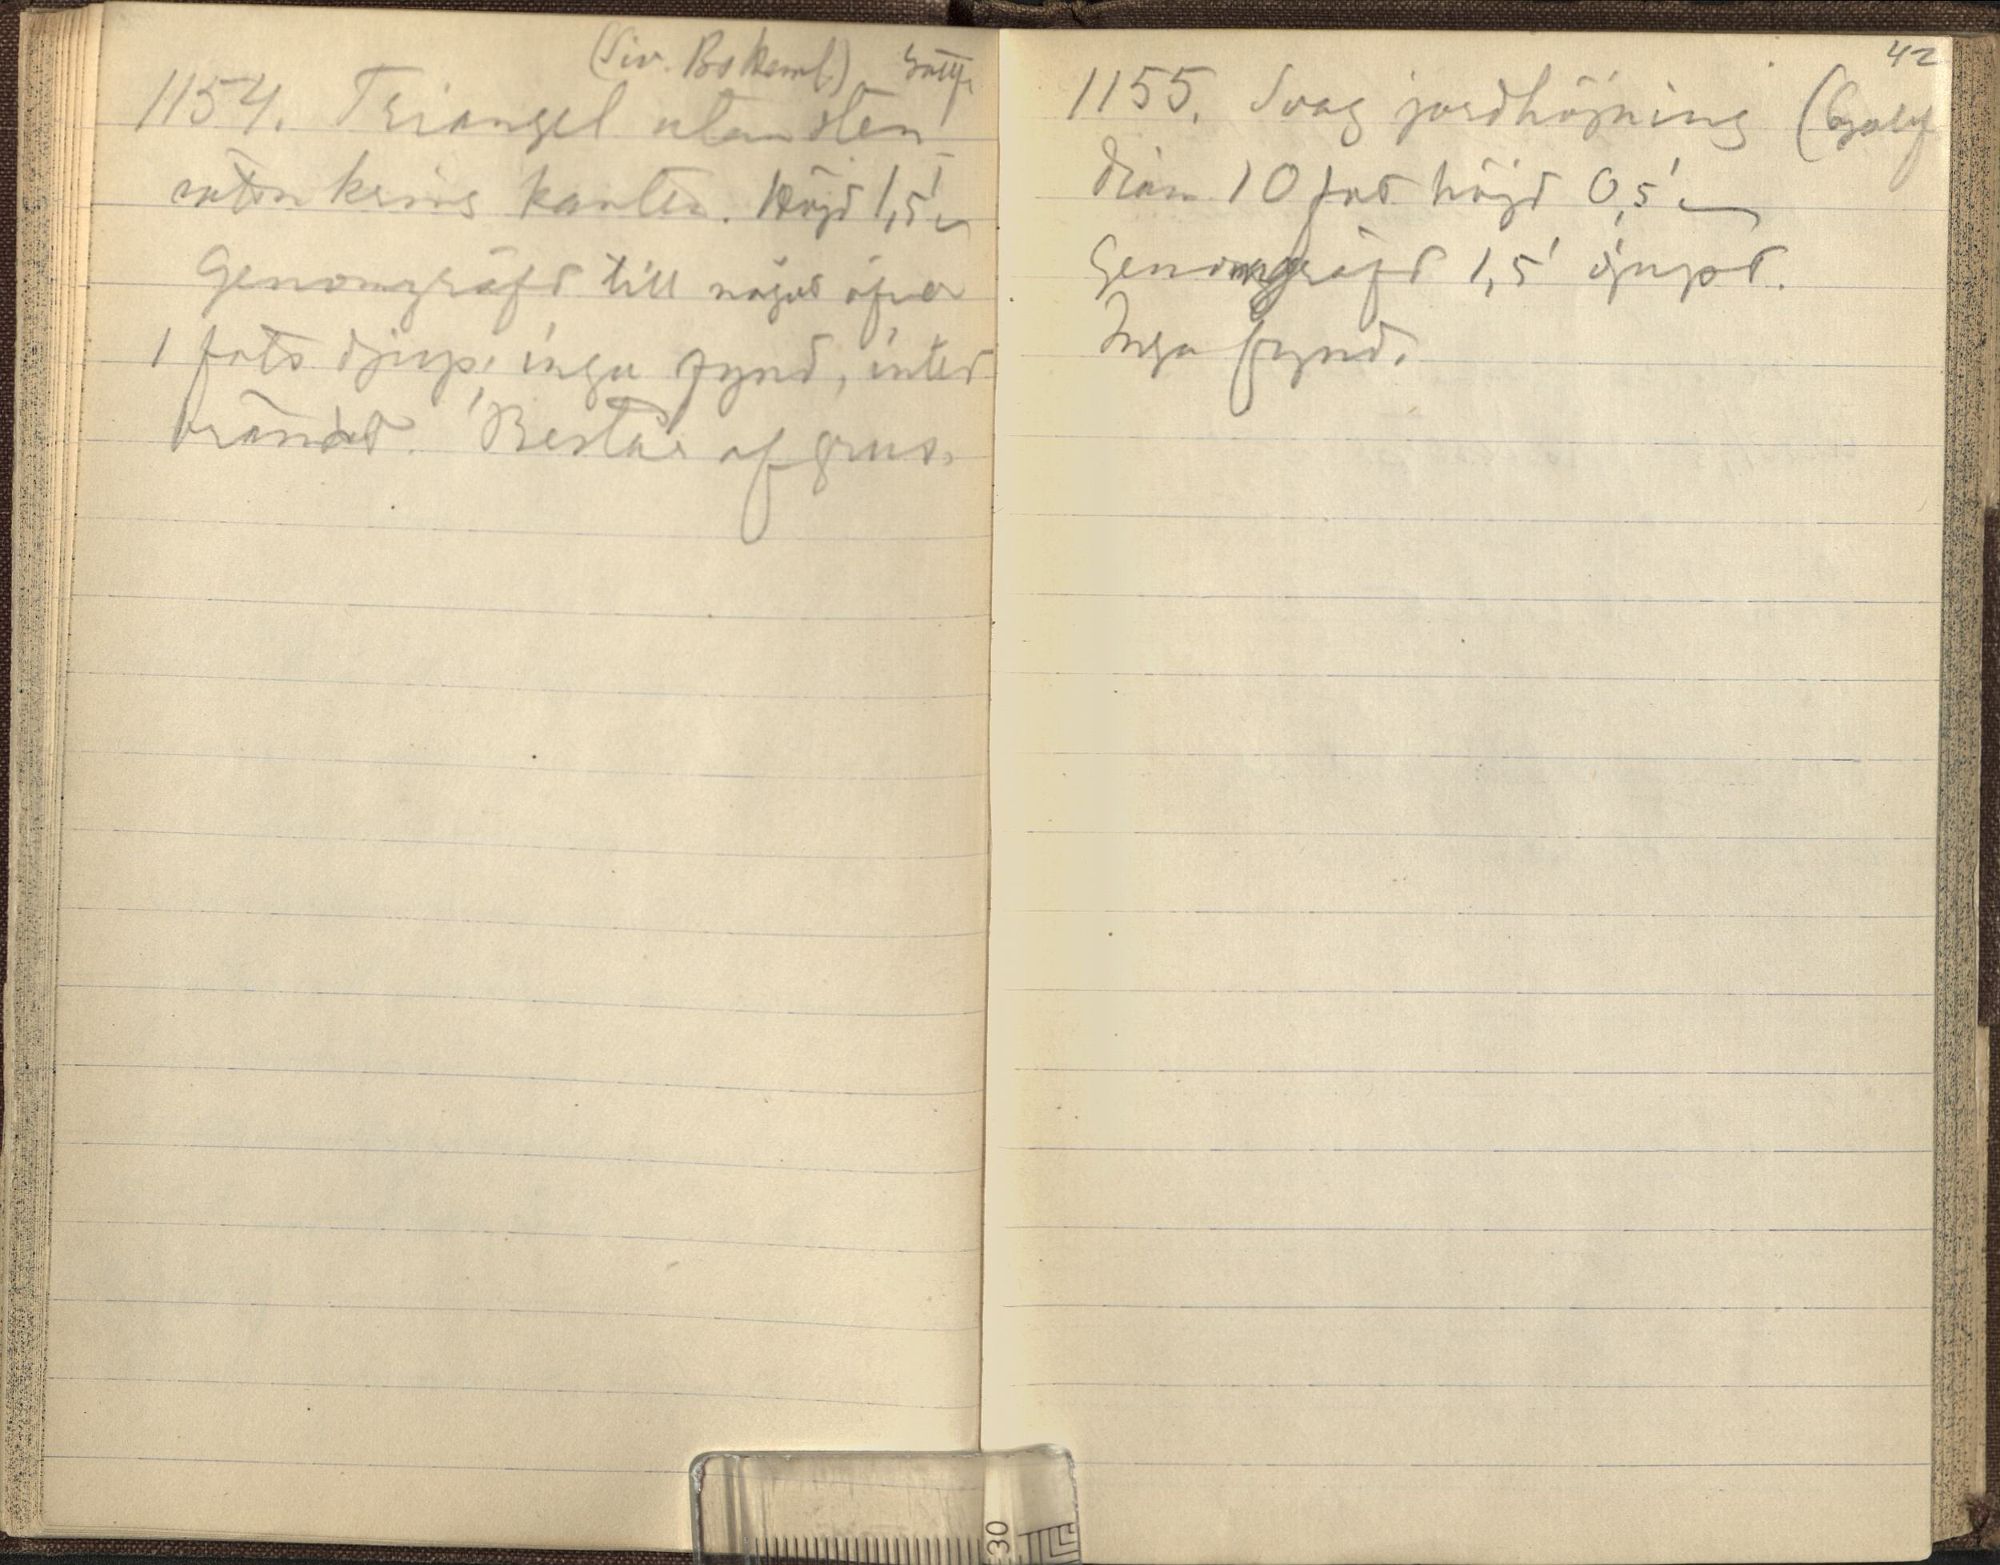 1154. Triangel utan sten
kring kanten. Höjd 1,5'
Genomgräfd till något öfver
1 fots djup, inga fynd, intet
brändt. Består af grus.
42
1155. Svag jordhöjning
diam 10 fot höjd 0,5'
Genomgräfd 1,5' djupt.
Inga fynd.
30